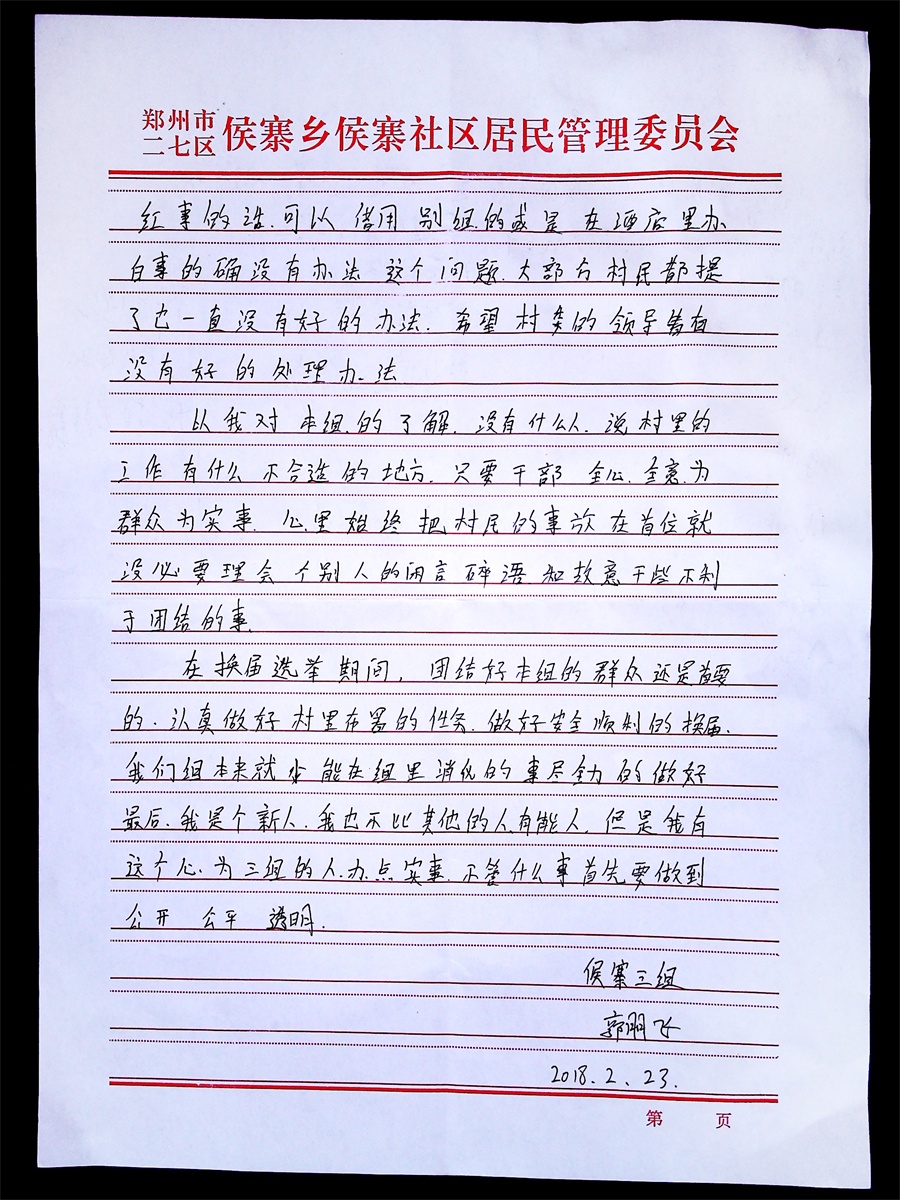 郑州市
二七区 侯寨乡侯寨社区居民管理委员会
红事的话.可以 借用 别组.的或是 在 酒店里办.
白事的确没有办法 这个 问题.大部分村民都提
了也一直没有好的办法. 希望 村委的领导看有
没有好的处理办法
以我对本组.的了解.没有什么人.说村里的
工作有什么不合适的地方.只要干部 全心.全意.为
群众为实事.心里始终把村民的事放在首位就
没必要理会个别人的闲言碎语和故意干些不利
于团结的事.
在换届选举期间, 团结好本组的群众还是首要
的.认真做好村里布署的任务.做好安全顺利的换届.
我们组本来就少 能在组里消化的事尽全力的做好
最后.我是个新人.我也不比其他的人有能人.但是我有
这个心.为三组的人.办点实事.不管什么事首先要做到
公开 公平 透明.
侯寨三组
郭朋飞
2018.2.23.
第 页